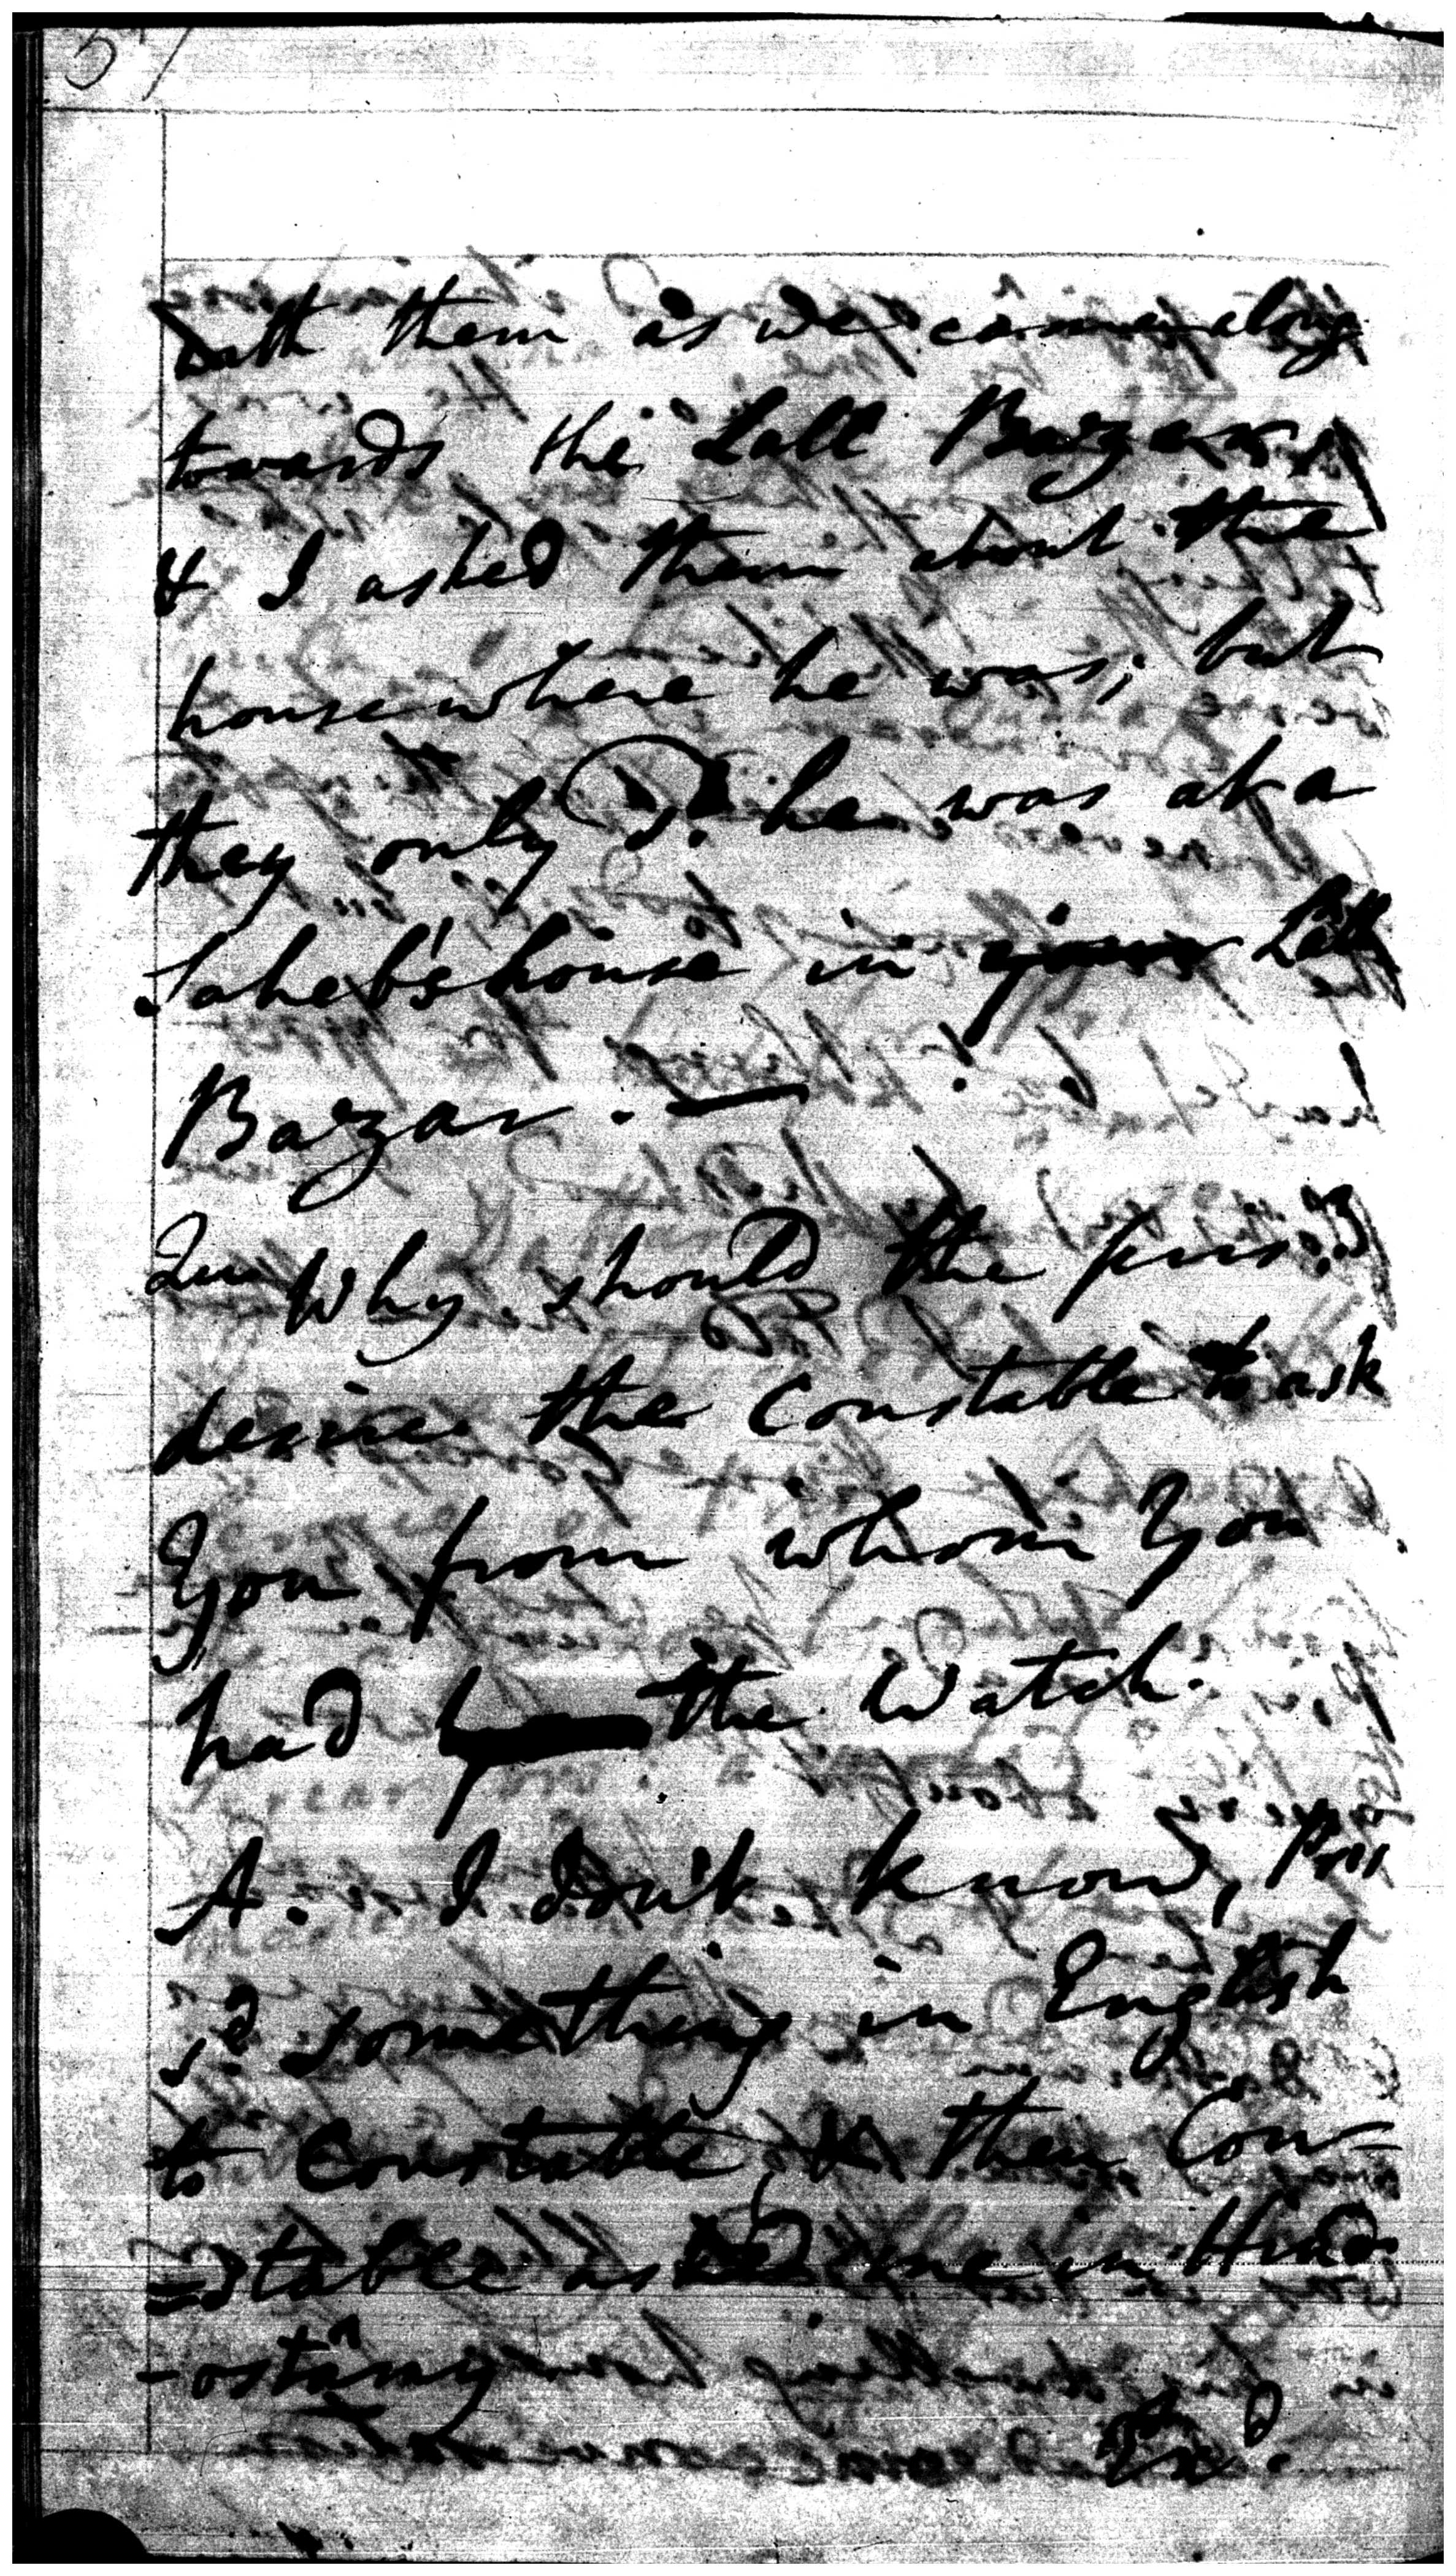 57
with them as we came along
towards the Lall Bazar,
& I asked them about the
house where he was; but
they only sd. he was at a
Saheb's house in Lall
Bazar. —
Qu Why should the prisr.
desire the Constable to ask
You from whom You
had the Watch.
A. I don't know, Prisr
sd. something in English
to Constable, & then Con=
=stable asked me in Hind
-ostany